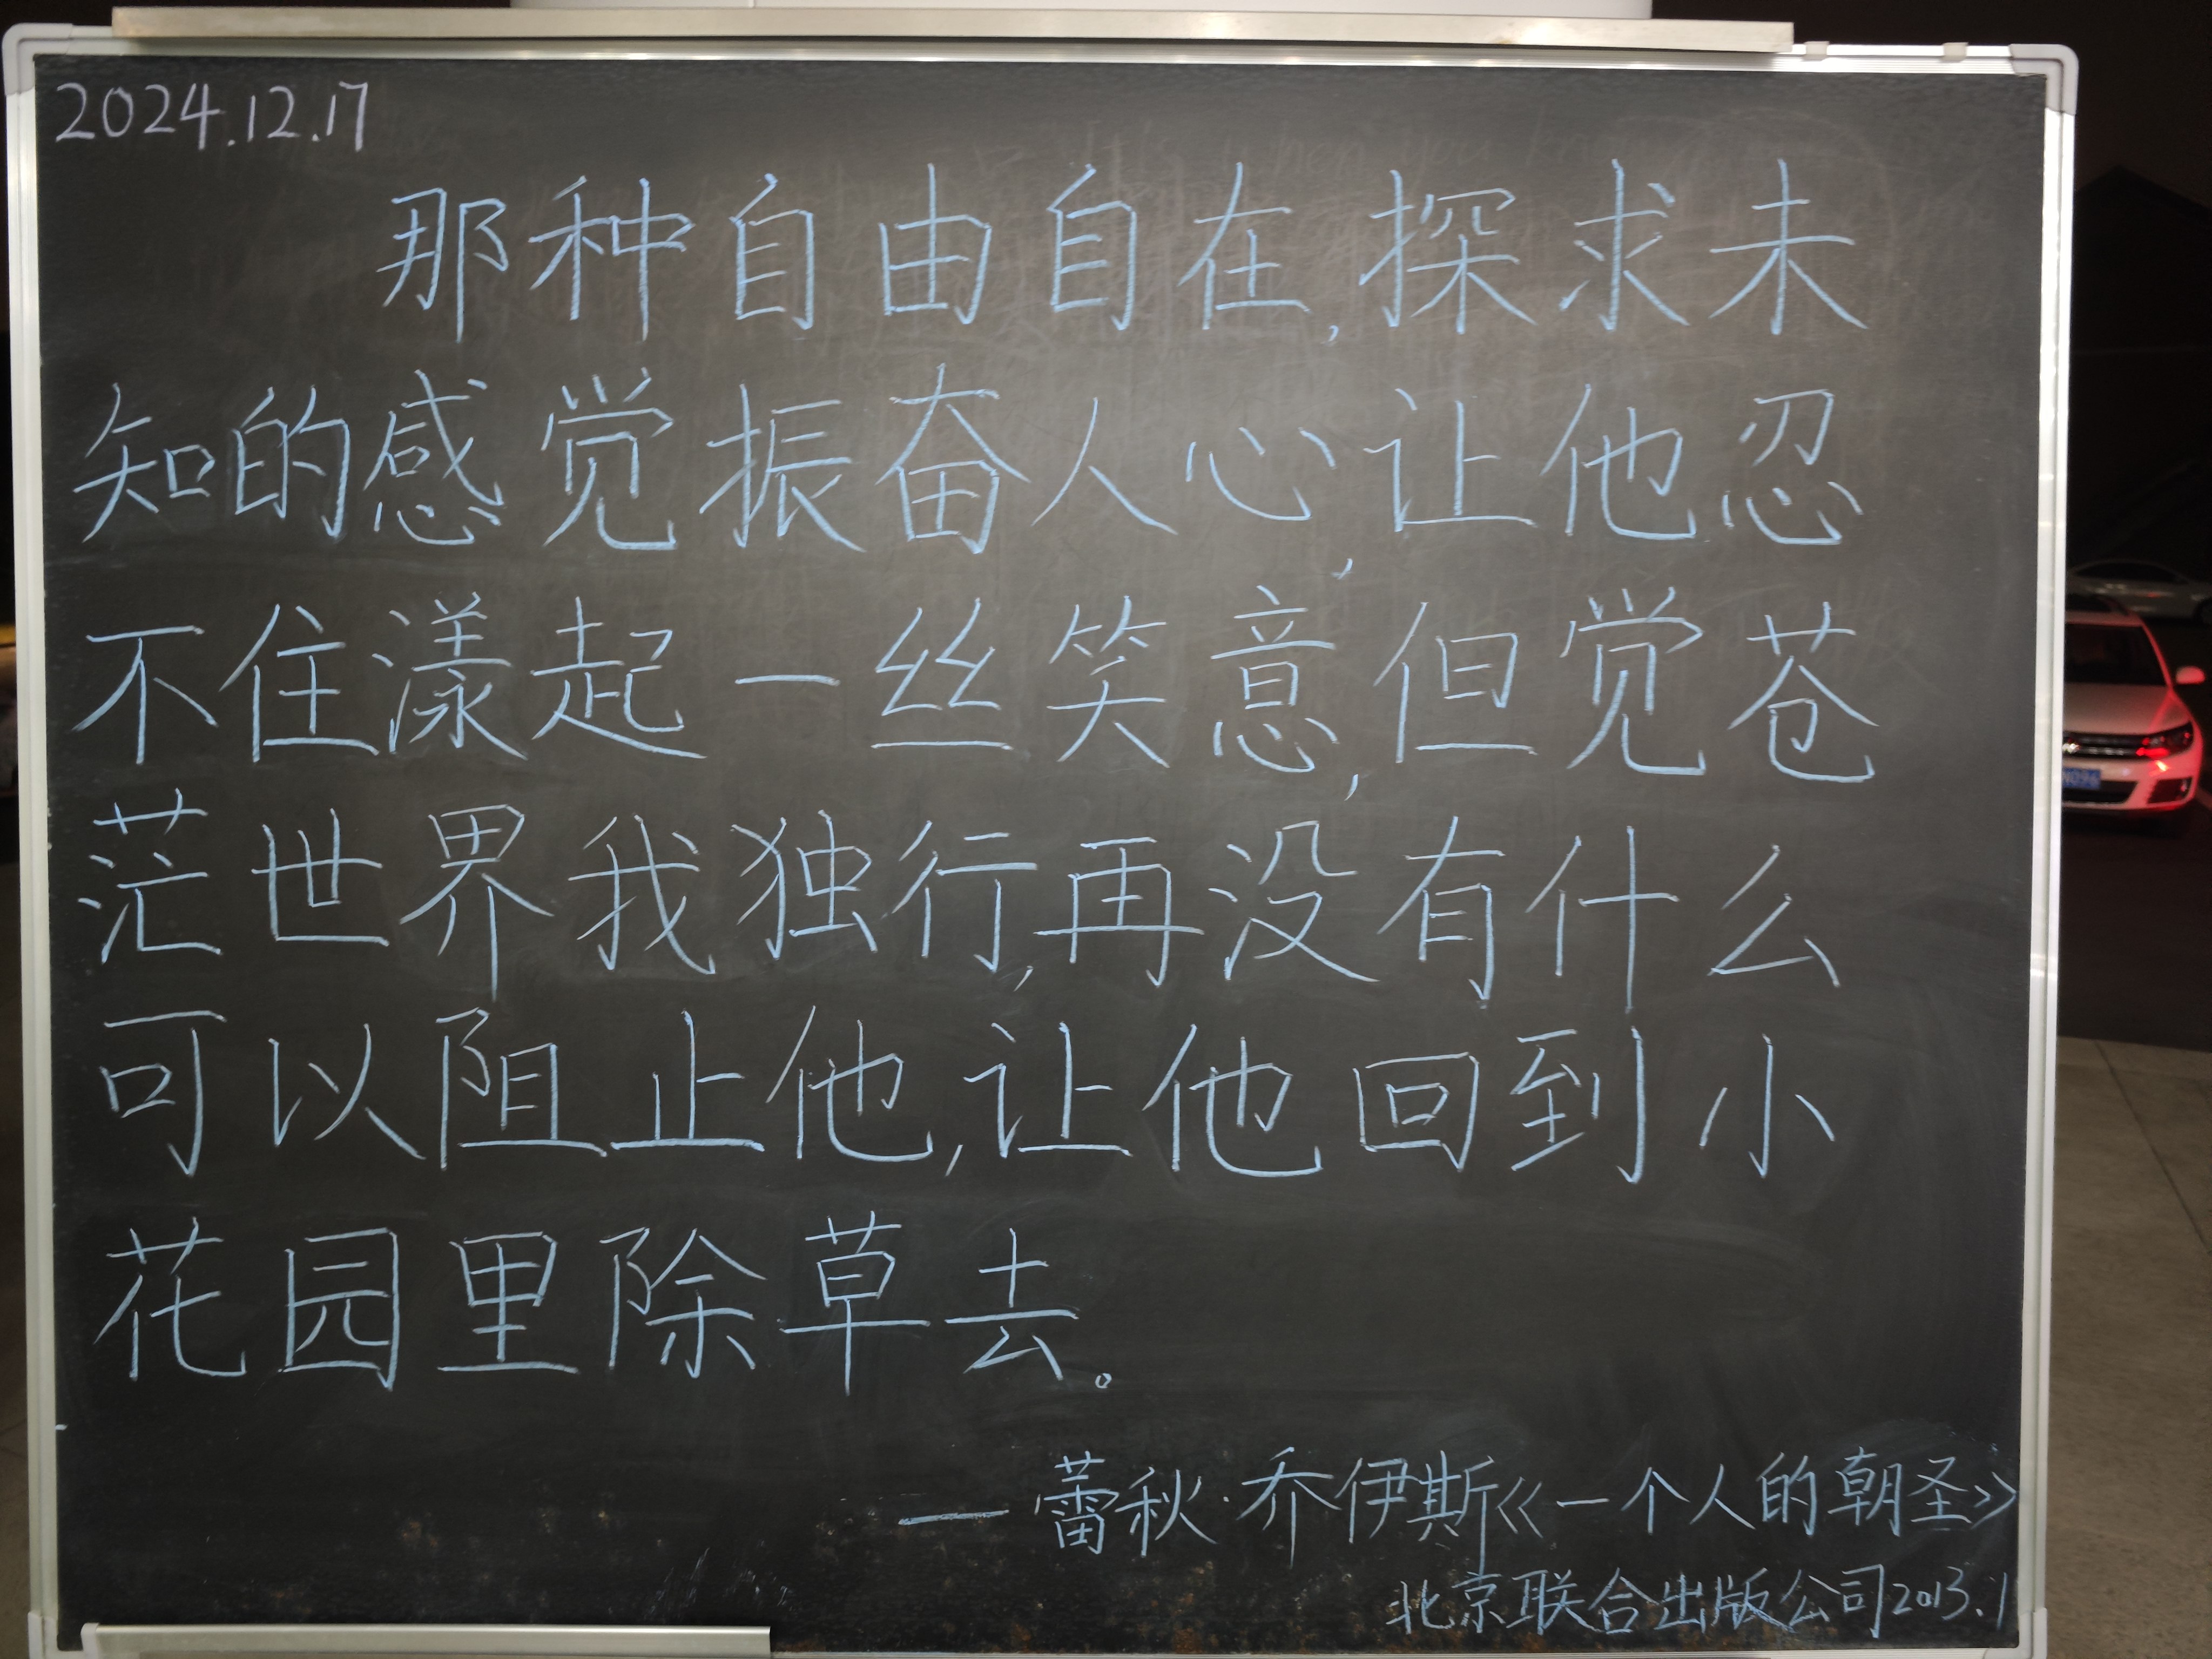 2024.12.17
那种自由自在,探求未
知的感觉振奋人心,让他忍
不住漾起一丝笑意,但觉苍
茫世界我独行,再没有什么
可以阻止他,让他回到小
花园里除草去。
—蕾秋·乔伊斯《一个人的朝圣》
北京联合出版公司2013.1